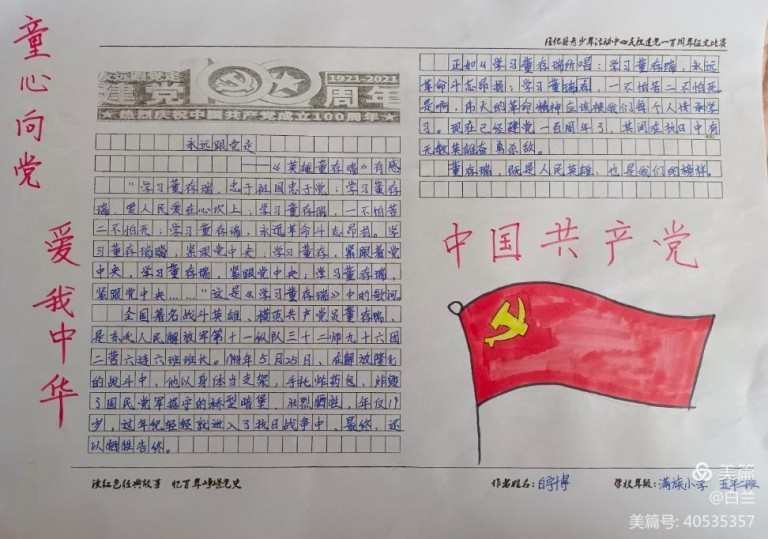 童心向党
爱我中华
隆化县青少年活动中心庆祝建党一百周年征文比赛
永远跟党走
1921-2021
建党100周年
★热烈庆祝中国共产党成立100周年★
永远跟党走
——《英雄董存瑞》有感
“学习董存瑞，忠于祖国忠于党；学习董存
瑞，爱人民爱在心坎上；学习董存瑞，一不怕苦
二不怕死；学习董存瑞，永远革命斗志昂扬。学
习董存瑞瑞，紧跟党中央；学习董存，紧跟着党
中央，学习董存瑞，紧跟党中央；学习董存瑞，
紧跟党中央……”这是《学习董存瑞》中的歌词。
全国著名战斗英雄、模范共产党员董存瑞，
是东北人民解放军第十一纵队三十二师九十六团
二营六连六班班长。1948年5月25日，在解放隆化
的战斗中，他以身体当支架，手托炸药包，炸毁
了国民党军据守的桥型暗堡，壮烈牺牲，年仅19
岁，这年纪轻轻就进入了抗日战争中，最终，还
以牺牲告终。
正如《学习董存瑞》所唱：学习董存瑞，永远
革命斗志昂扬；学习董瑞存，一不怕苦二不怕死。
是啊，伟大的革命精神应该被我们每个人传承学
习。现在已经建党一百周年了，共同在抗日中有
无数英雄奋勇杀敌。
董存瑞，既是人民英雄，也是我们的榜样。
中国共产党
读红色经典故事 忆百年峥嵘党史
作者姓名：白宇博
学校年级：满族小学 五年班
美篇
@白兰
美篇号: 40535357